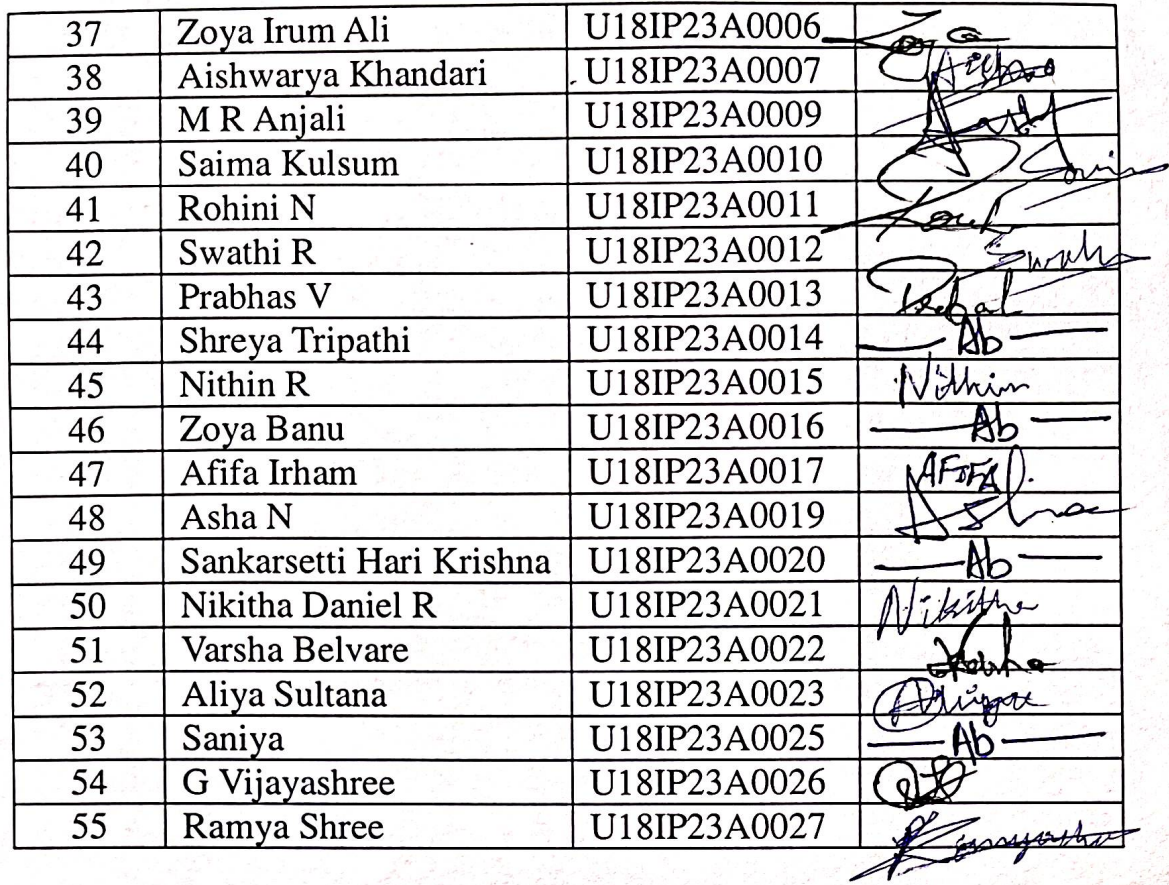 37 Zoya Irum Ali U18IP23A0006
38 Aishwarya Khandari U18IP23A0007
39 M R Anjali U18IP23A0009
40 Saima Kulsum U18IP23A0010
41 Rohini N U18IP23A0011
42 Swathi R U18IP23A0012
43 Prabhas V U18IP23A0013
44 Shreya Tripathi U18IP23A0014 Ab
45 Nithin R U18IP23A0015 Nithin
46 Zoya Banu U18IP23A0016 Ab
47 Afifa Irham U18IP23A0017 AFIFA
48 Asha N U18IP23A0019 Asha
49 Sankarsetti Hari Krishna U18IP23A0020 Ab
50 Nikitha Daniel R U18IP23A0021 Nikitha
51 Varsha Belvare U18IP23A0022
52 Aliya Sultana U18IP23A0023
53 Saniya U18IP23A0025 Ab
54 G Vijayashree U18IP23A0026
55 Ramya Shree U18IP23A0027